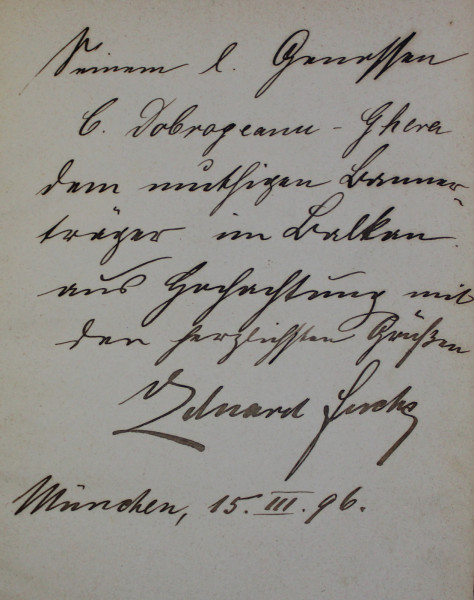 Seinem l. Genossen
C. Dobrogeanu-Ghera
dem muthigen Banner-
träger im Balkan
aus Hochachtung mit
den herzlichsten Grüßen
Eduard Fuchs
München, 15. III. 96.